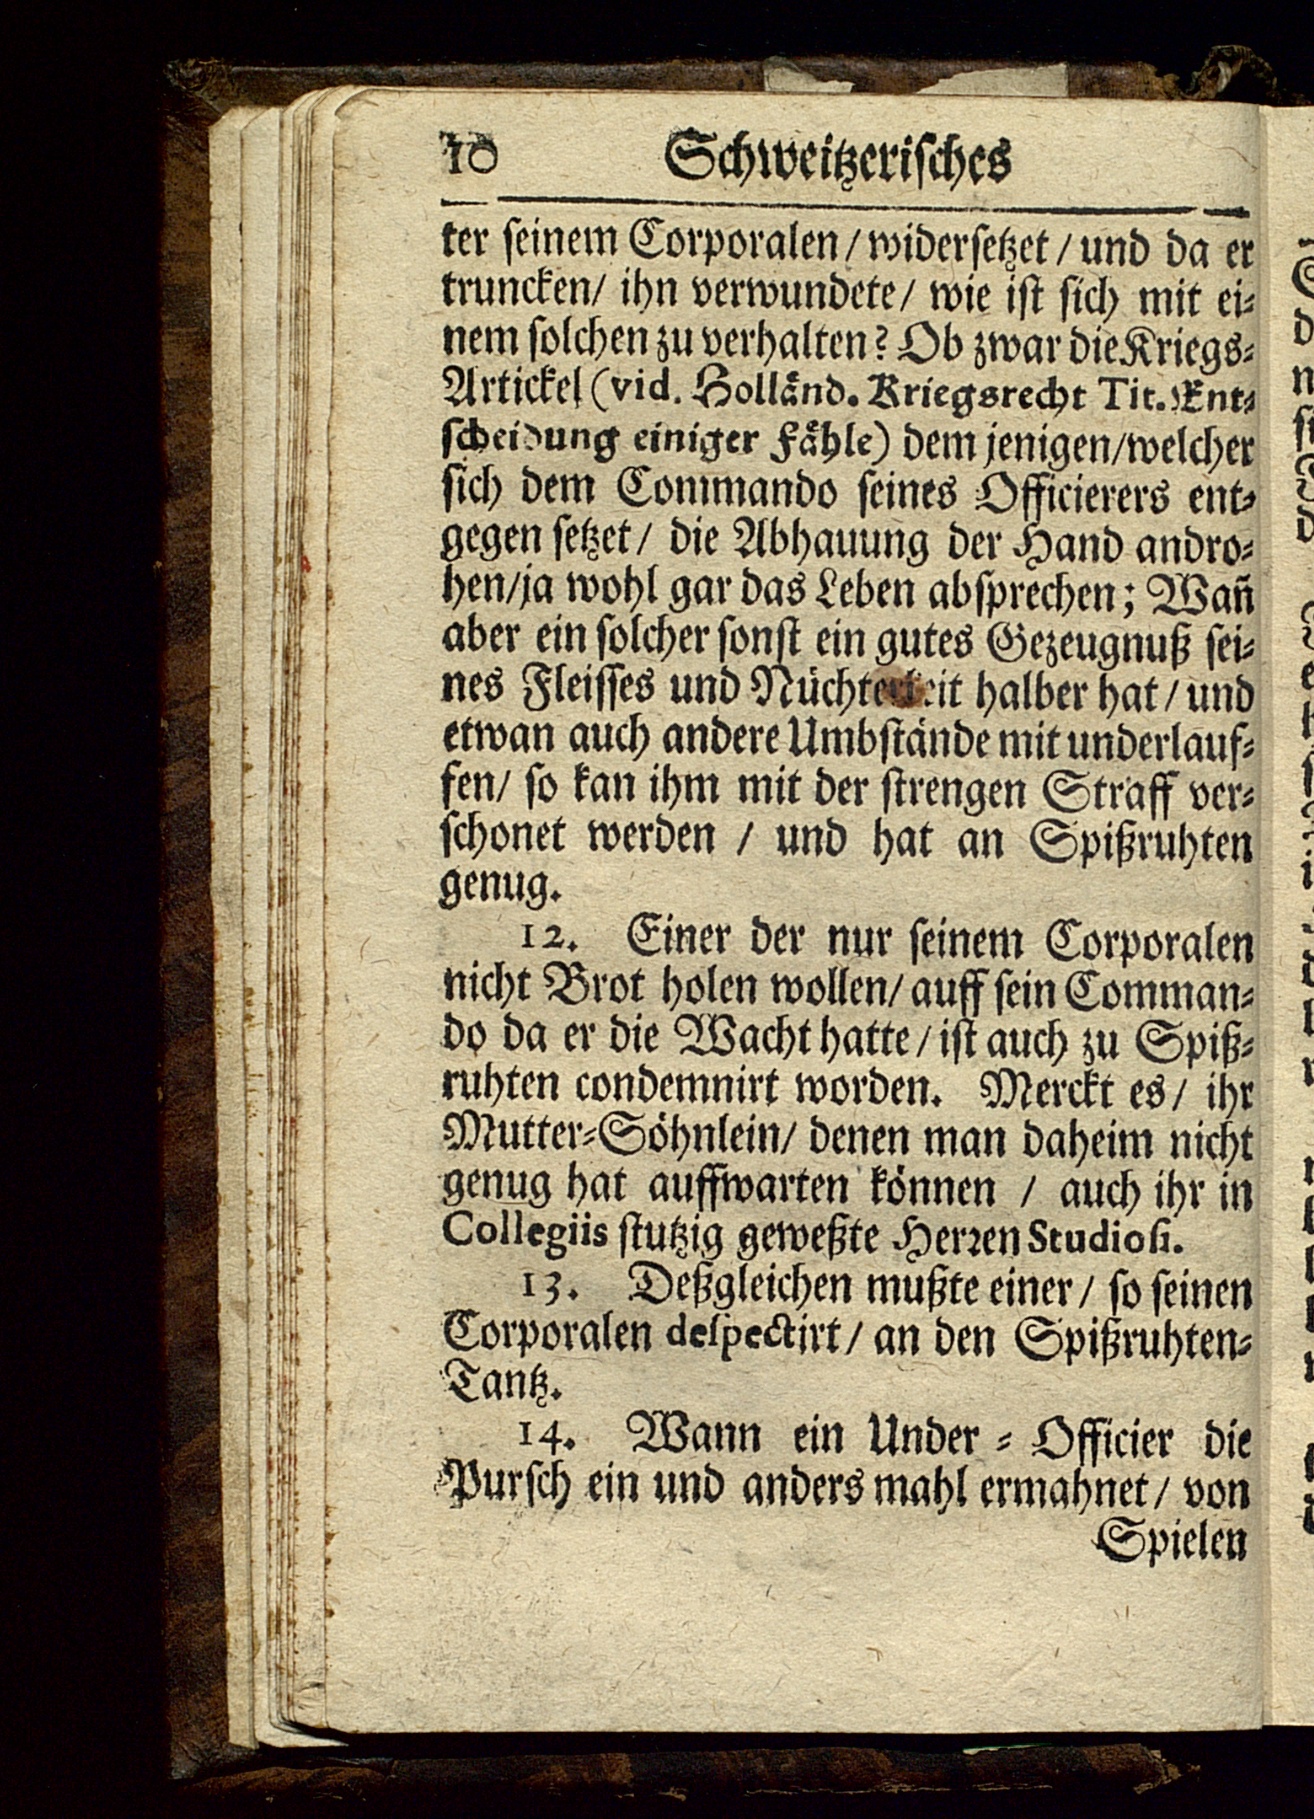 10 Schweitzerisches
ter seinem Corporalen / widersetzet / und da er
truncken / ihn verwundete / wie ist sich mit ei-
nem solchen zu verhalten? Ob zwar die Kriegs-
Artickel (vid. Holländ. Kriegsrecht Tit. Ent-
scheidung einiger Fähle) dem jenigen / welcher
sich dem Commando seines Officierers ent-
gegen setzet / die Abhauung der Hand andro-
hen / ja wohl gar das Leben absprechen; Wañ
aber ein solcher sonst ein gutes Gezeugnuß sei-
nes Fleisses und halber hat / und
etwan auch andere Umbstände mit underlauf-
fen / so kan ihm mit der strengen Straff ver-
schonet werden / und hat an Spißruhten
genug.
12. Einer der nur seinem Corporalen
nicht Brot holen wollen / auff sein Comman-
do da er die Wacht hatte / ist auch zu Spiß-
ruhten condemnirt worden. Merckt es / ihr
Mutter-Söhnlein / denen man daheim nicht
genug hat auffwarten können / auch ihr in
Collegiis stutzig geweßte Herren Studiosi.
13. Deßgleichen mußte einer / so seinen
Corporalen despectirt / an den Spißruhten-
Tantz.
14. Wann ein Under-Officier die
Pursch ein und anders mahl ermahnet / von
Spielen